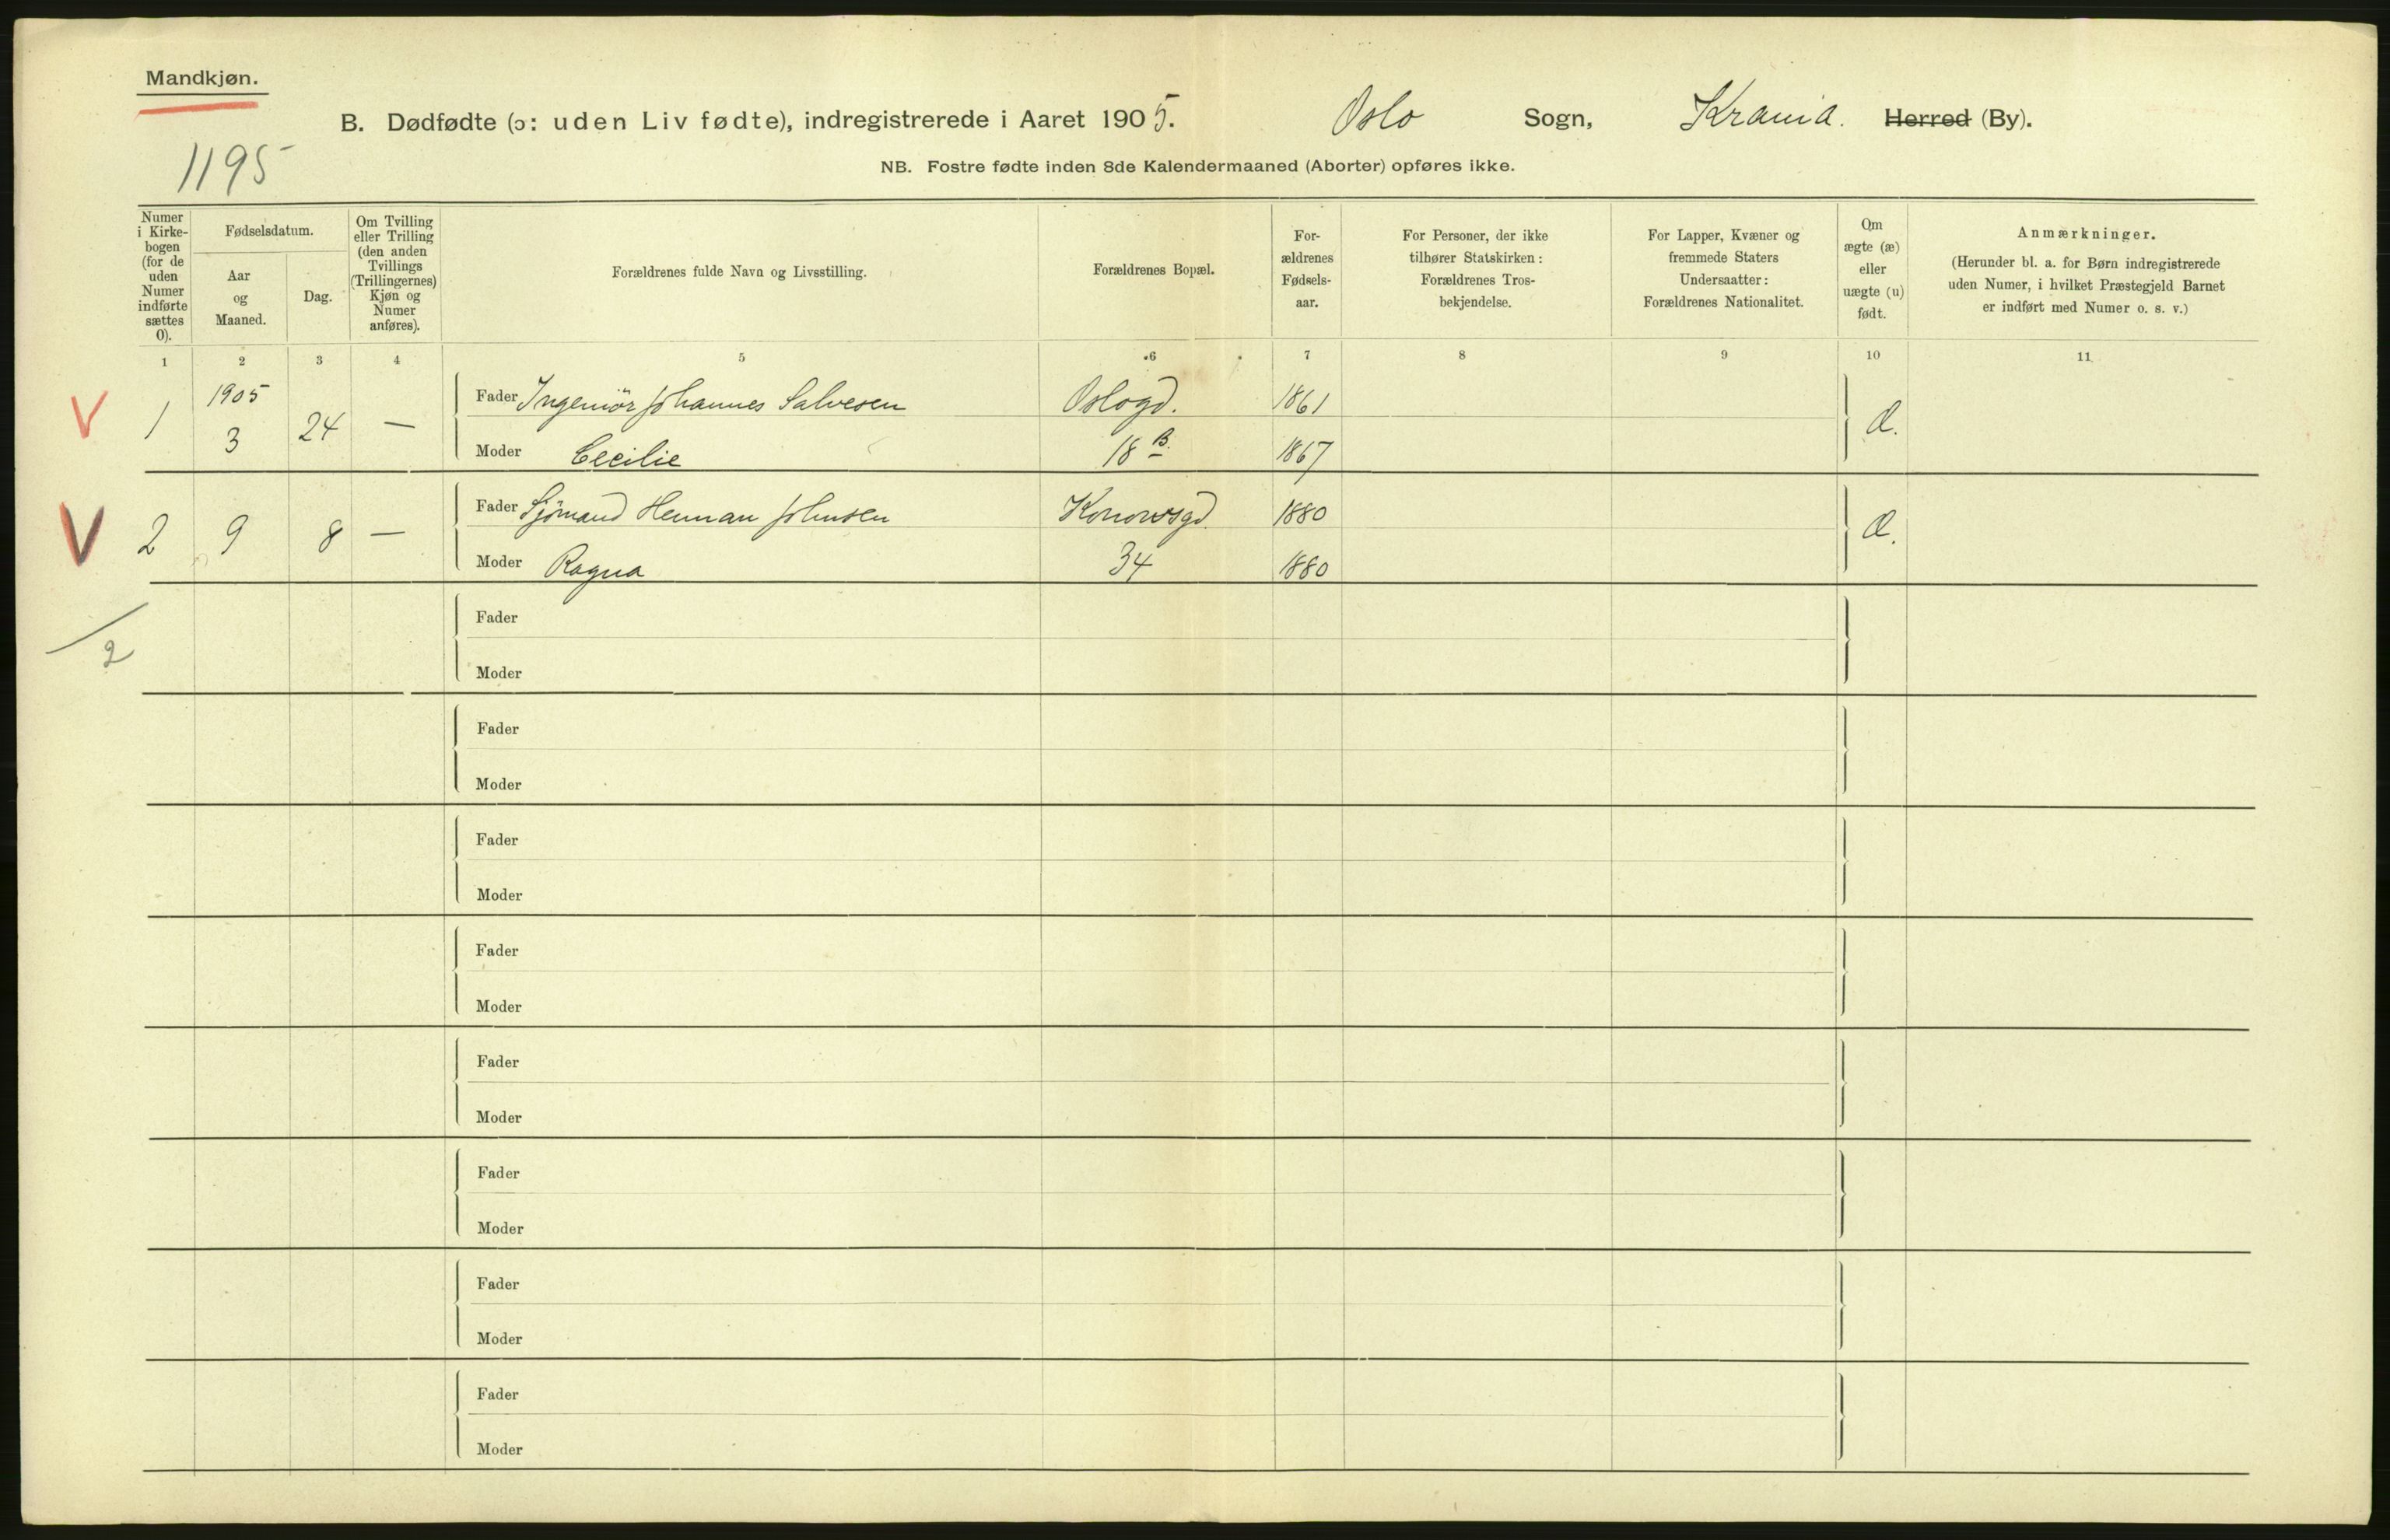 Mandkjøn.
B. Dødfødte (ɔ: uden Liv fødte), indregistrerede i Aaret 1905. Oslo Sogn, Krania. Herred (By).
1195
NB. Fostre fødte inden 8de Kalendermaaned (Aborter) opføres ikke.
Numer i Kirke- bogen (for de uden Numer indførte sættes 0).
Fødselsdatum.
Aar og Maaned.
Dag.
Om Tvilling eller Trilling (den anden Tvillings (Trillingernes) Kjøn og Numer anføres).
Forældrenes fulde Navn og Livsstilling.
Forældrenes Bopæl.
For- ældrenes Fødsels- aar.
For Personer, der ikke tilhører Statskirken: Forældrenes Tros- bekjendelse.
For Lapper, Kvæner og fremmede Staters Undersaatter: Forældrenes Nationalitet.
Om ægte (æ) eller uægte (u) født.
Anmærkninger.
(Herunder bl. a. for Børn indregistrerede uden Numer, i hvilket Præstegjeld Barnet er indført med Numer o. s. v.)
1 2 3 4 5 6 7 8 9 10 11
V 1 1905 3 24 — Fader Ingeniör Johannes Salvesen Oslogd. 1861 Æ.
Moder Cecilie 18 B. 1867
V 2 9 8 — Fader Sjömand Herman Johnsen Konowsgd. 1880 Æ.
Moder Ragna 34 1880
2
Fader
Moder
Fader
Moder
Fader
Moder
Fader
Moder
Fader
Moder
Fader
Moder
Fader
Moder
Fader
Moder